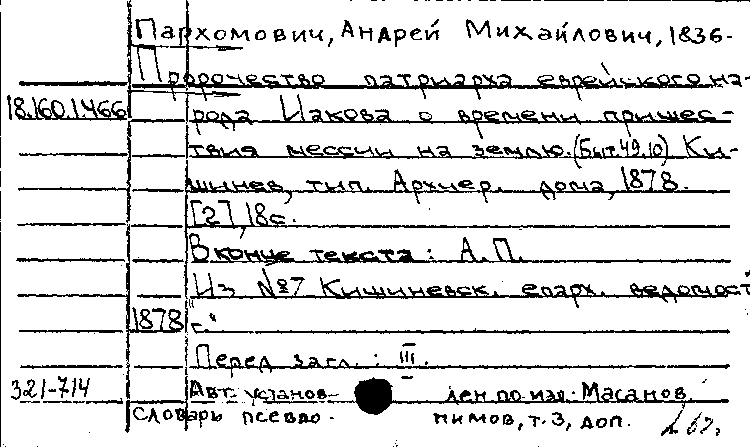 Пархомович, Андрей Михайлович, 1836-
Пророчество патриарха еврейского на-
18.160.1.466 рода Иакова о времени пришес-
твия мессии на землю. (Быт. 49.10) Ки-
шинев, тип. Архиер. дома, 1878.
[2], 18 с.
В конце текста: А. П.
Из №7 Кишиневск. епарх. ведомост
1878 г."
Перед загл.: III.
321-714 Авт. установ- лен по изд.: Масанов.
словарь псевдо- нимов, т. 3, доп.